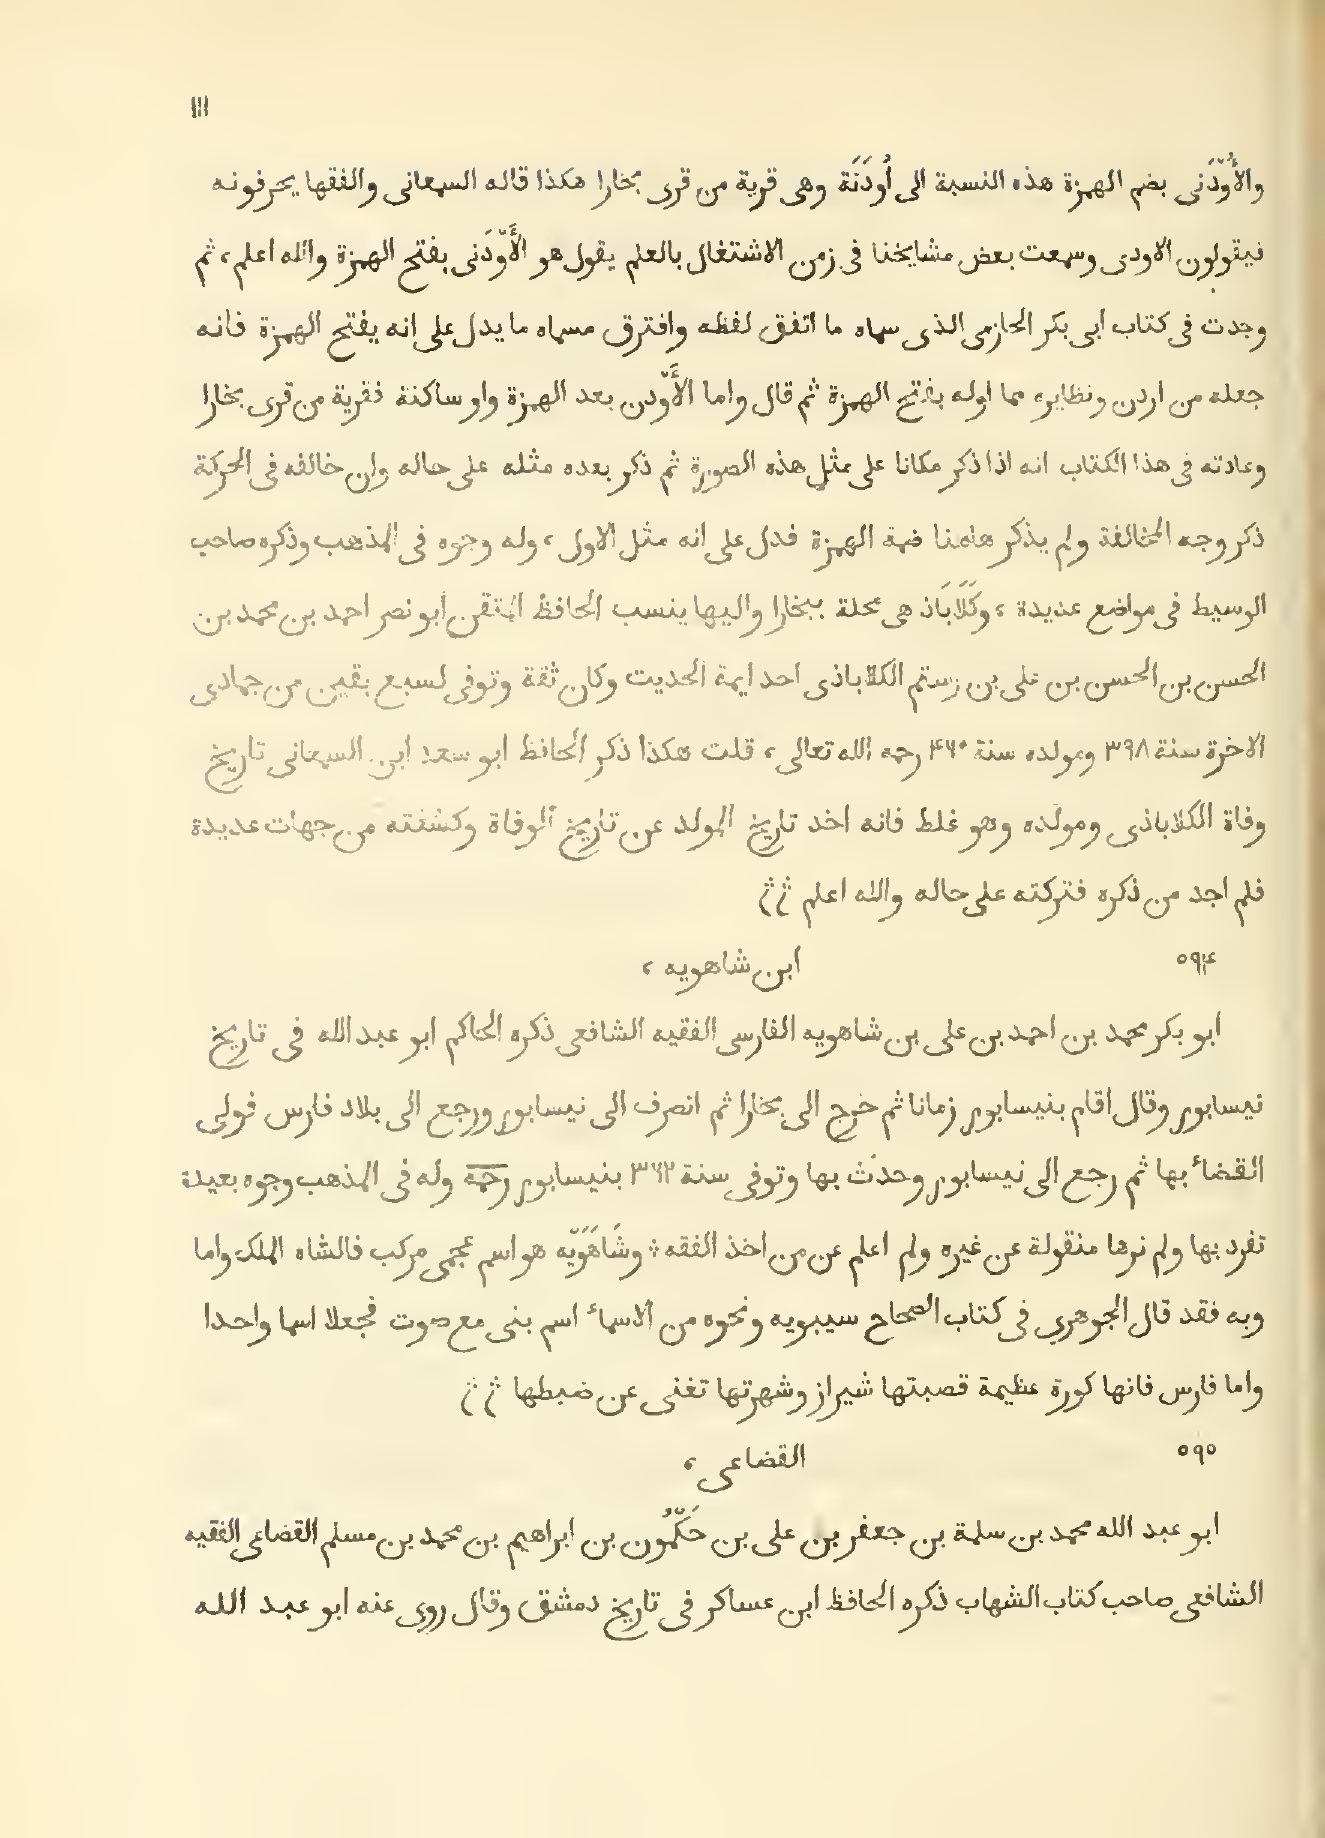 ١١١
والأُوْدَنى بضم الهمزة هذه النسبة الى أُودَنَة وهى قرية من قرى بخارا هكذا قاله السمعانى والفقها يحرفونه
فيقولون الاودى وسمعت بعض مشايخنا فى زمن الاشتغال بالعلم يقول هو الأَوْدَنى بفتح الهمزة والله اعلم، ثم
وجدت فى كتاب ابى بكر الحازمى الذى سماه ما اتفق لفظه وافترق مسماه ما يدل على انه يفتح الهمزة فانه
جعله من اردن ونظايره مما اوله بفتح الهمزة ثم قال واما الأَوْدن بعد الهمزة واو ساكنة فقرية من قرى بخارا
وعادته فى هذا الكتاب انه اذا ذكر مكانا على مثل هذه الصورة ثم ذكر بعده مثله على حاله وان خالفه فى الحركة
ذكر وجه المخالفة ولم يذكر هاهنا ضمة الهمزة فدل على انه مثل الاول، وله وجوه فى المذهب وذكره صاحب
الوسيط فى مواضع عديدة، وكَلَابَاذ هى محلة ببخارا واليها ينسب الحافظ المتقن ابو نصر احمد بن محمد بن
الحسن بن الحسن بن على بن رستم الكلاباذى احد ايمة الحديث وكان ثقة وتوفى لسبع بقين من جمادى
الاخرة سنة ٣٩٨ ومولده سنة ۴۶۰ رحمه الله تعالى، قلت هكذا ذكر الحافظ ابو سعد ابن السمعانى تاريخ
وفاة الكلاباذى ومولده وهو غلط فانه اخد تاريخ المولد عن تاريخ الوفاة وكشفته من جهات عديدة
فلم اجد من ذكره فتركته على حاله والله اعلم ؞؞
٥٩۴ ابن شاهويه،
ابو بكر محمد بن احمد بن على بن شاهويه الفارسى الفقيه الشافعى ذكره الحاكم ابو عبد الله فى تاريخ
نيسابور وقال اقام بنيسابور زمانا ثم خرج الى بخارا ثم انصرف الى نيسابور ورجع الى بلاد فارس فولى
القضاء بها ثم رجع الى نيسابور وحدث بها وتوفى سنة ٣۶٢ بنيسابور رحمه وله فى المذهب وجوه بعيدة
تفرد بها ولم نرها منقولة عن غيره ولم اعلم عن من اخذ الفقه ؞ وشَاهَوَيْه هو اسم عجمى مركب فالشاه الملك واما
ويه فقد قال الجوهرى فى كتاب الصحاح سيبويه ونحوه من الاسماء اسم بنى مع صوت فجعلا اسما واحدا
واما فارس فانها كورة عظيمة قصبتها شيراز وشهرتها تغنى عن ضبطها ؞؞
٥٩٥ القضاعى،
ابو عبد الله محمد بن سلمة بن جعفر بن على بن حَكْمُون بن ابراهيم بن محمد بن مسلم القضاعى الفقيه
الشافعى صاحب كتاب الشهاب ذكره الحافظ ابن عساكر فى تاريخ دمشق وقال روى عنه ابو عبد الله